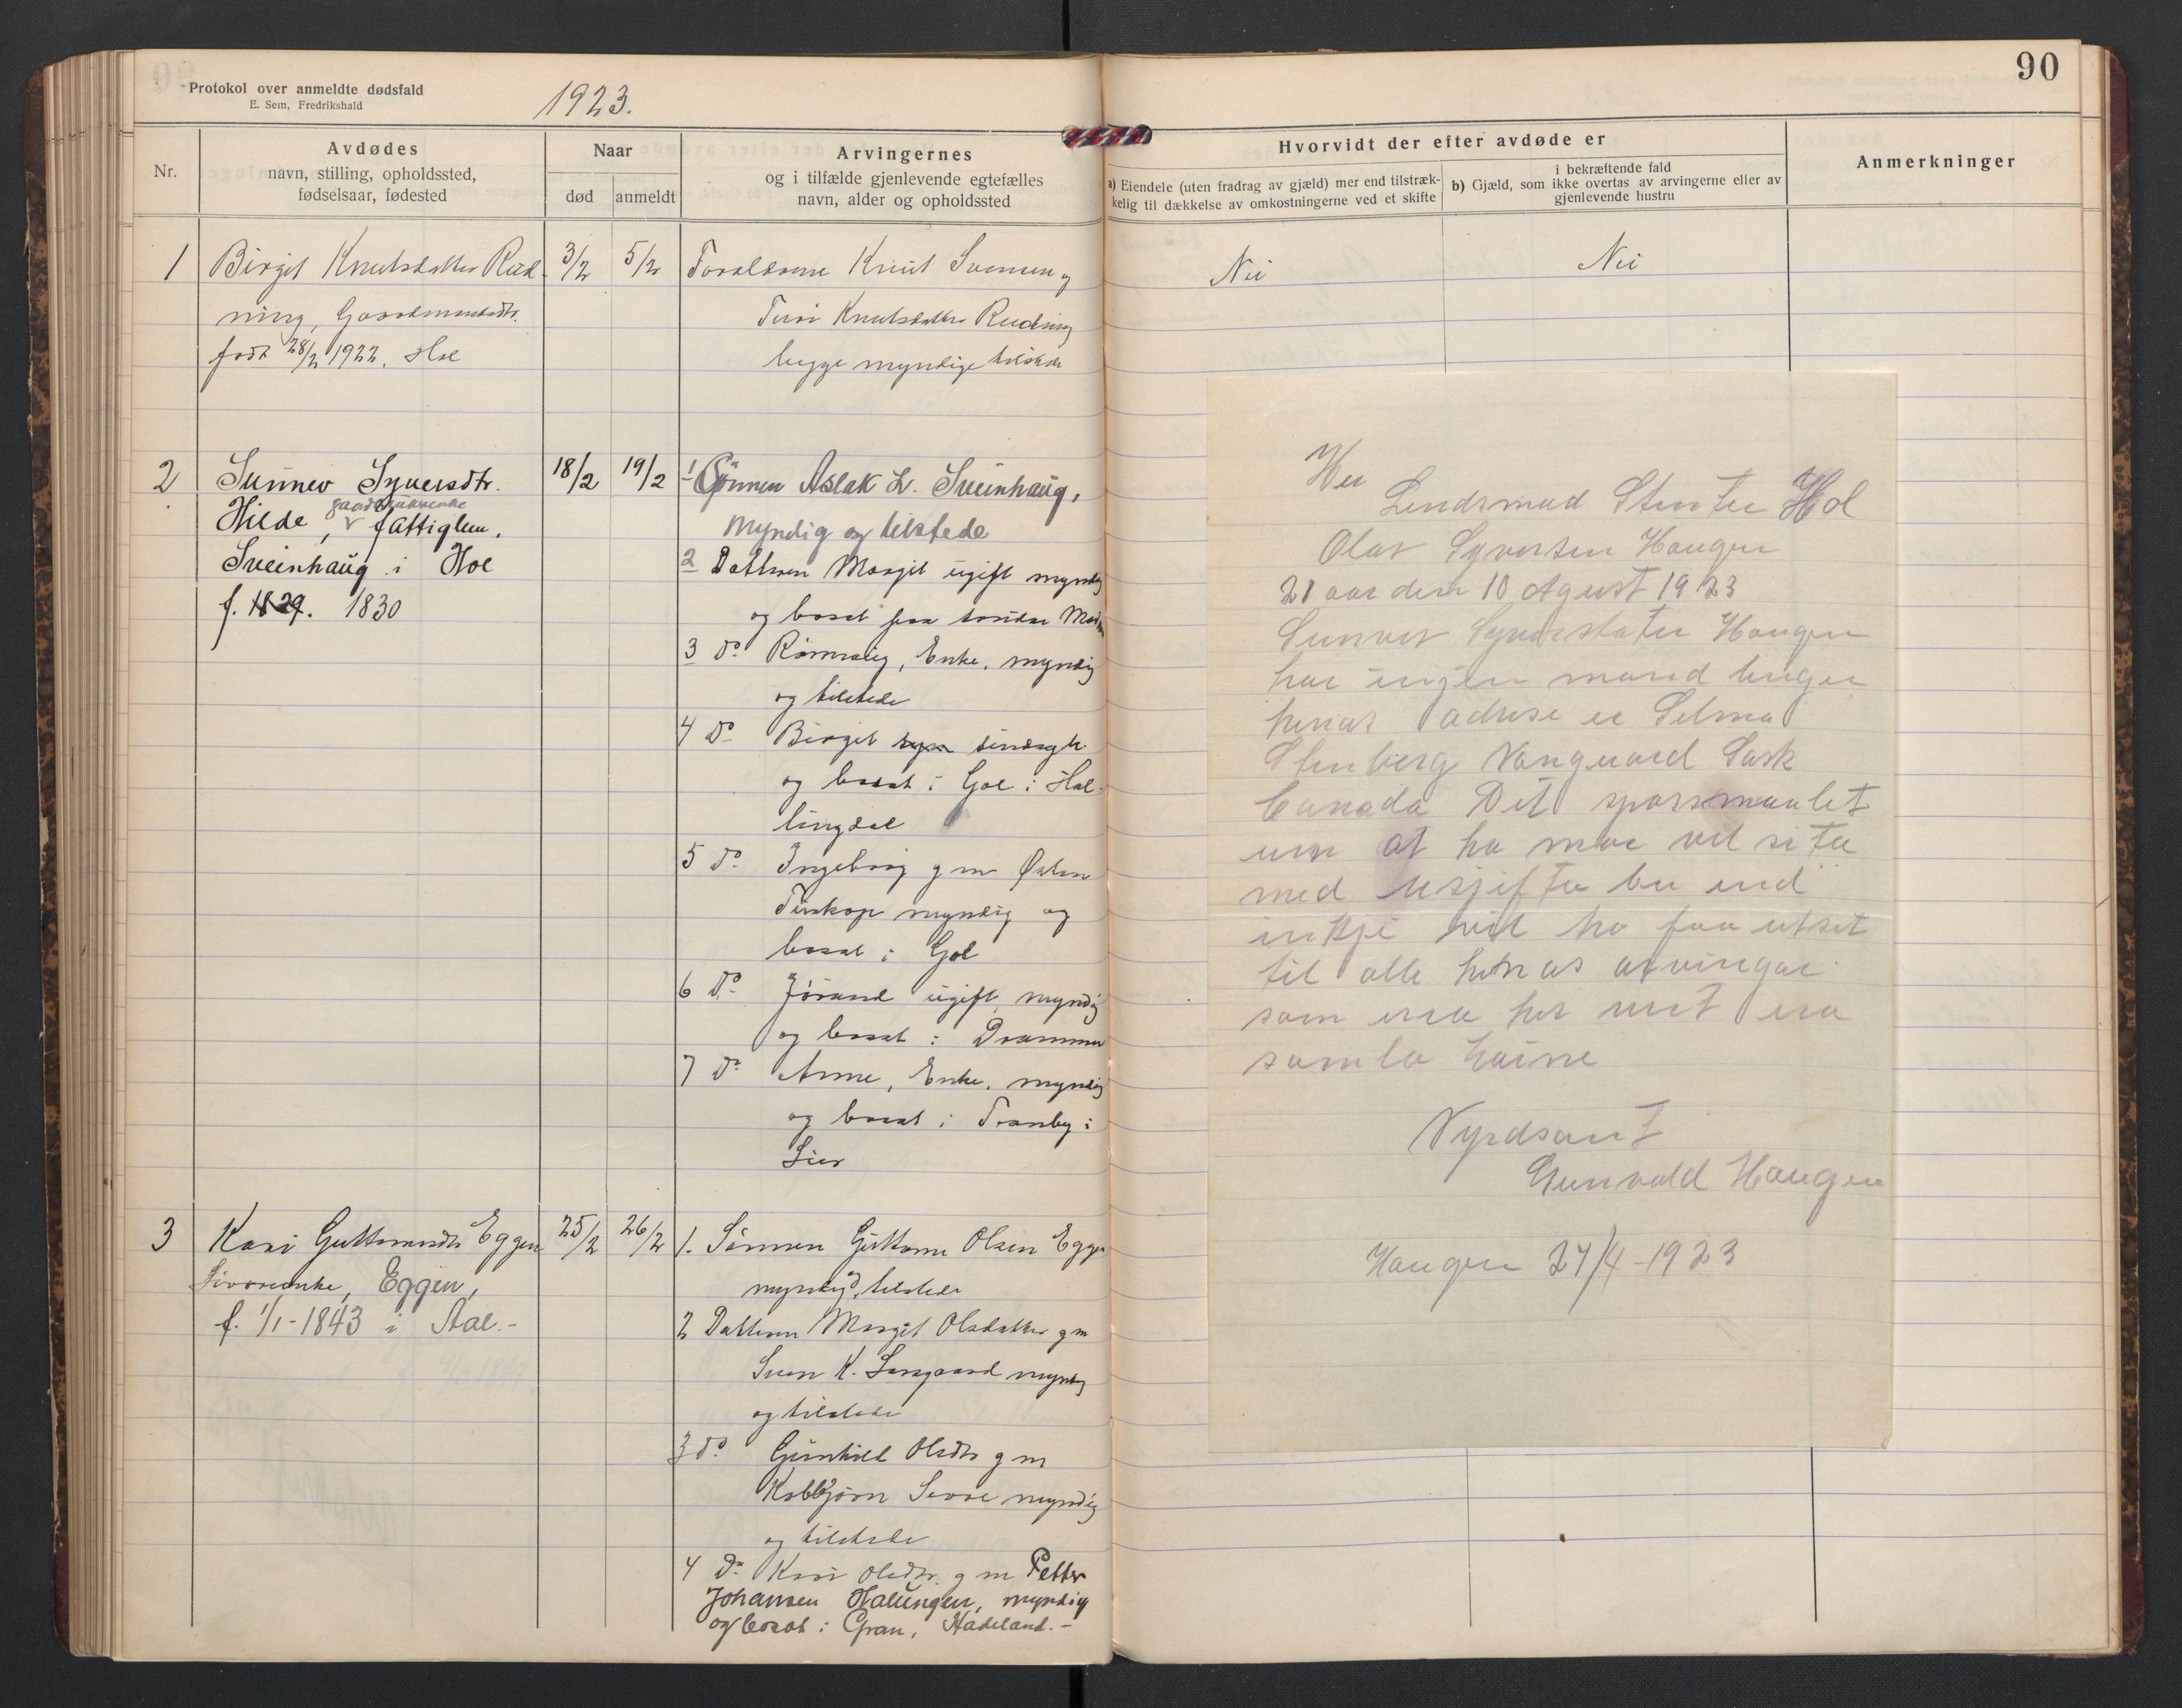 90
Protokol over anmeldte dødsfald
E. Sem, Fredrikshald
1923.
Nr.
Avdødes
navn, stilling, opholdssted,
fødselsaar, fødested
Naar
død
anmeldt
Arvingernes
og i tilfælde gjenlevende egtefælles
navn, alder og opholdssted
Hvorvidt der efter avdøde er
a) Eiendele (uten fradrag av gjæld) mer end tilstræk-
kelig til dækkelse av omkostningerne ved et skifte
i bekræftende fald
b) Gjæld, som ikke overtas av arvingerne eller av
gjenlevende hustru
Anmerkninger
1
Birgit Knutsdatter Rud-
ning, Gaardmandsdtr.
født 28/2 1922. Hol
3/2
5/2
Forældrene Knut Svensen og
Turi Knutsdatter Rudning
begge myndige tilstede
Nei
Nei
2
Sunnev Syversdtr.
gaardbrukerenke
Hilde, v fattiglem,
Sveinhaug i Hol
f. 1829. 1830
18/2
19/2
1 Sønnen Aslak L. Sveinhaug,
myndig og tilstede
2 Datteren Margit ugift myndig
og bosat paa søndre
3 do Rønnaug, Enke, myndig
og tilstede
4 do Birgit sindsyk
og bosat i Gol i Hal-
lingdal
5 do Ingeborg g m
Tuskop myndig og
bosat i Gol
6 do Jørand ugift, myndig
og bosat i Drammen
7 do Anne, Enke, myndig
og bosat i Tranby i
Lier
3
Kari Guttormsdtr Eggen
Livøreenke, Eggen,
f. 1/1-1843 i Aal.-
25/2
26/2
1. Sønnen Guttorm Olsen Eggen
myndig og tilstede
2 Datteren Margit Olsdatter g m
Sven K. Sangaard myndig
og tilstede
3 do Gunhild Olsdtr g m
Kolbjørn Sevre myndig
og tilstede
4 do Kari Olsdtr. g m Petter
Johansen Halingen, myndig
og bosat i Gran, Hadeland.-
Her
Lendsmad Stenter Hol
Olav Syversen Haugen
21 aar den 10 Agust 1923
Sunnev Syverstater Haugen
har ingen mand lenger
henas adrese er Selma
Stenberg Vanguard Sask
Canada Det sporsmaalet
um at ho moe vil sitta
med usjifta bu end
inkje vil ho faa utset
til alle henas arvingar
som era her nut era
samla haime
Vyrdsamt
Gunvald Haugen
Haugen 24/4-1923